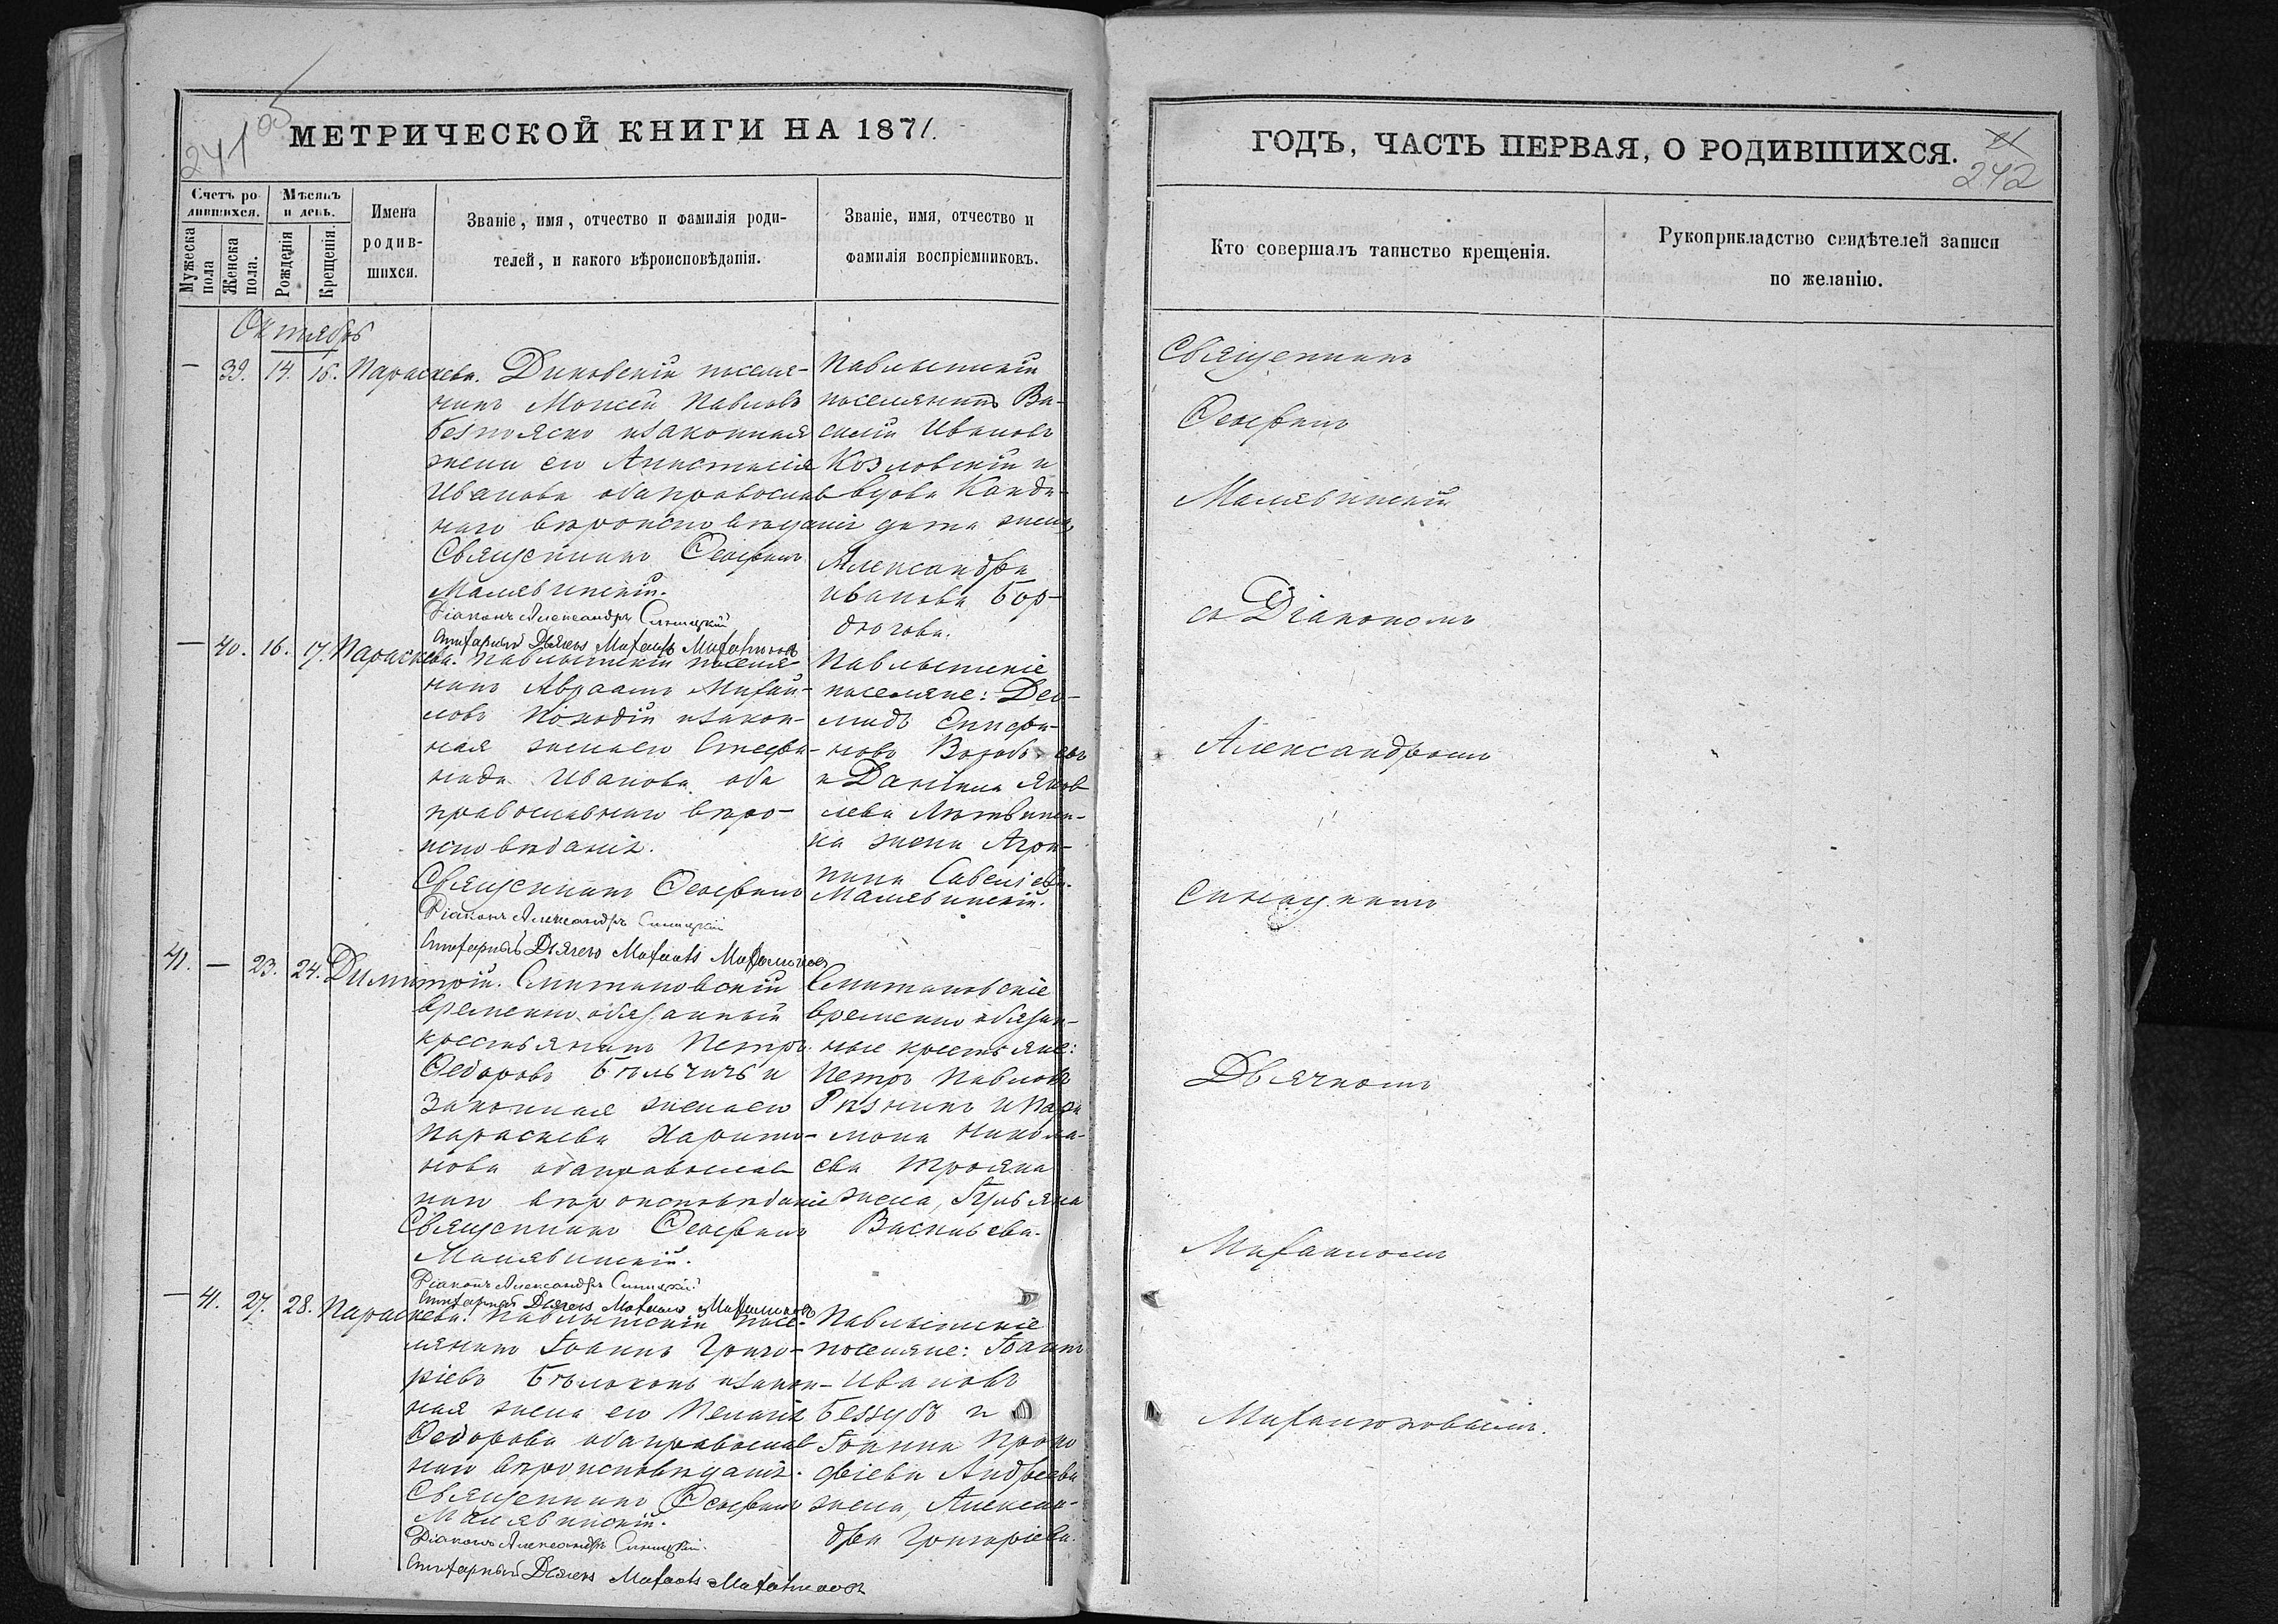 241
МЕТРИЧЕСКОЙ КНИГИ НА 1871.
Счетъ родившихся.
Мѣсяцъ и день.
Мужеска пола
Женска пола.
Рожденія
Крещенія.
Имена родившихся.
Званіе, имя, отчество и фамилія родителей, и какого вѣроисповѣданія.
Званіе, имя, отчество и фамилія воспріемниковъ.
Октябрь
— 39. 14. 15. Параскева.
Диковскій поселя-
нинъ Моисей Павловъ
Безпояско и законная
жена его Анастасія
Иванова оба православ
наго вѣроисповѣданія
Священникъ Ѳеофанъ
Малявинскій.
Діаконъ Александръ Синицкій
Дьячекъ Михаилъ
Павлышскій
поселянинъ Ва-
силій Ивановъ
Козловскій и
вдова Канди-
дата жена,
Александра
Иванова Бор-
дюгова.
— 40. 16. 17. Параскева.
Павлышскій поселя-
нинъ Авраамъ Михай-
ловъ и закон-
ная жена его Стефа-
нида Иванова оба
православнаго вѣро-
исповѣданія.
Священникъ Ѳеофанъ Малявинскій.
Діаконъ Александръ Синицкій
Дьячекъ Михаилъ
Павлышскіе
поселяне: Део-
мидъ Епифа-
новъ
и Даніила Яков
лева Литвинен-
ка жена Агри-
пина Савеліева.
41. — 23. 24. Димитрій.
временно обязанный
крестьянинъ Петръ
Ѳедоровъ и
законная жена его
Параскева Харито-
нова оба православ
наго вѣроисповѣданія
Священникъ Ѳеофанъ
Малявинскій.
Діаконъ Александръ Синицкій
Дьячекъ Михаилъ
временно обязан-
ные крестьяне:
Петръ Павловъ
Рѣзникъ и
мона Никола-
ева Трояна
жена, Іульяна
Васильева.
— 41. 27. 28. Параскева.
Павлышскій посе-
лянинъ Іоаннъ Григо-
ріевъ Бѣлоконь и закон-
ная жена его Пелагія
Ѳедорова оба православ
наго вѣроисповѣданія.
Священникъ Ѳеофанъ
Малявинскій.
Діаконъ Александръ Синицкій.
Дьячекъ Михаилъ
Павлышскіе
поселяне: Іоаннъ
Ивановъ
Беззубъ и
Іоанна Проко
фіева Андреева
жена, Алексан-
дра Григоріева.
ГОДЪ, ЧАСТЬ ПЕРВАЯ, О РОДИВШИХСЯ.
242
Кто совершалъ таинство крещенія.
Рукоприкладство свидѣтелей записи по желанію.
Священникъ
Ѳеофанъ
Малявинскій
съ Діакономъ
Александромъ
Синицкимъ
Дьячкомъ
Михаиломъ